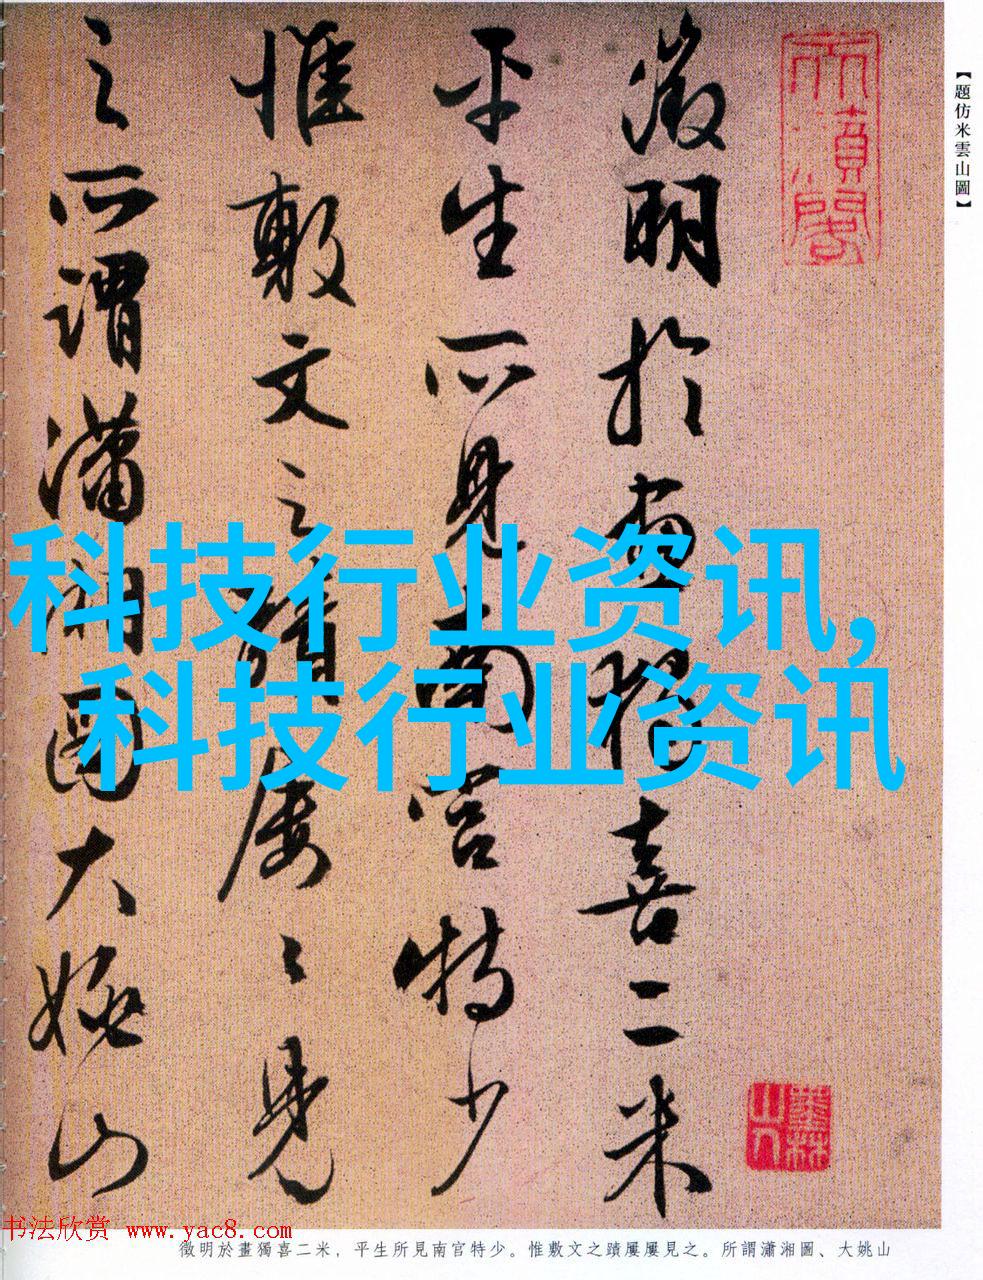 【題仿米雲山圖】
徵明於畫獨喜二米
平生所見南宮特少
惟敷文之蹟屢〻見
之所謂瀟湘圖大姚山
科技行业资讯,
科技行业资讯
书法欣赏 www.yac8.com
徵明於畫獨喜二米，平生所見南宫特少。惟敷文之蹟屢屢見之。所謂瀟湘圖、大姚山